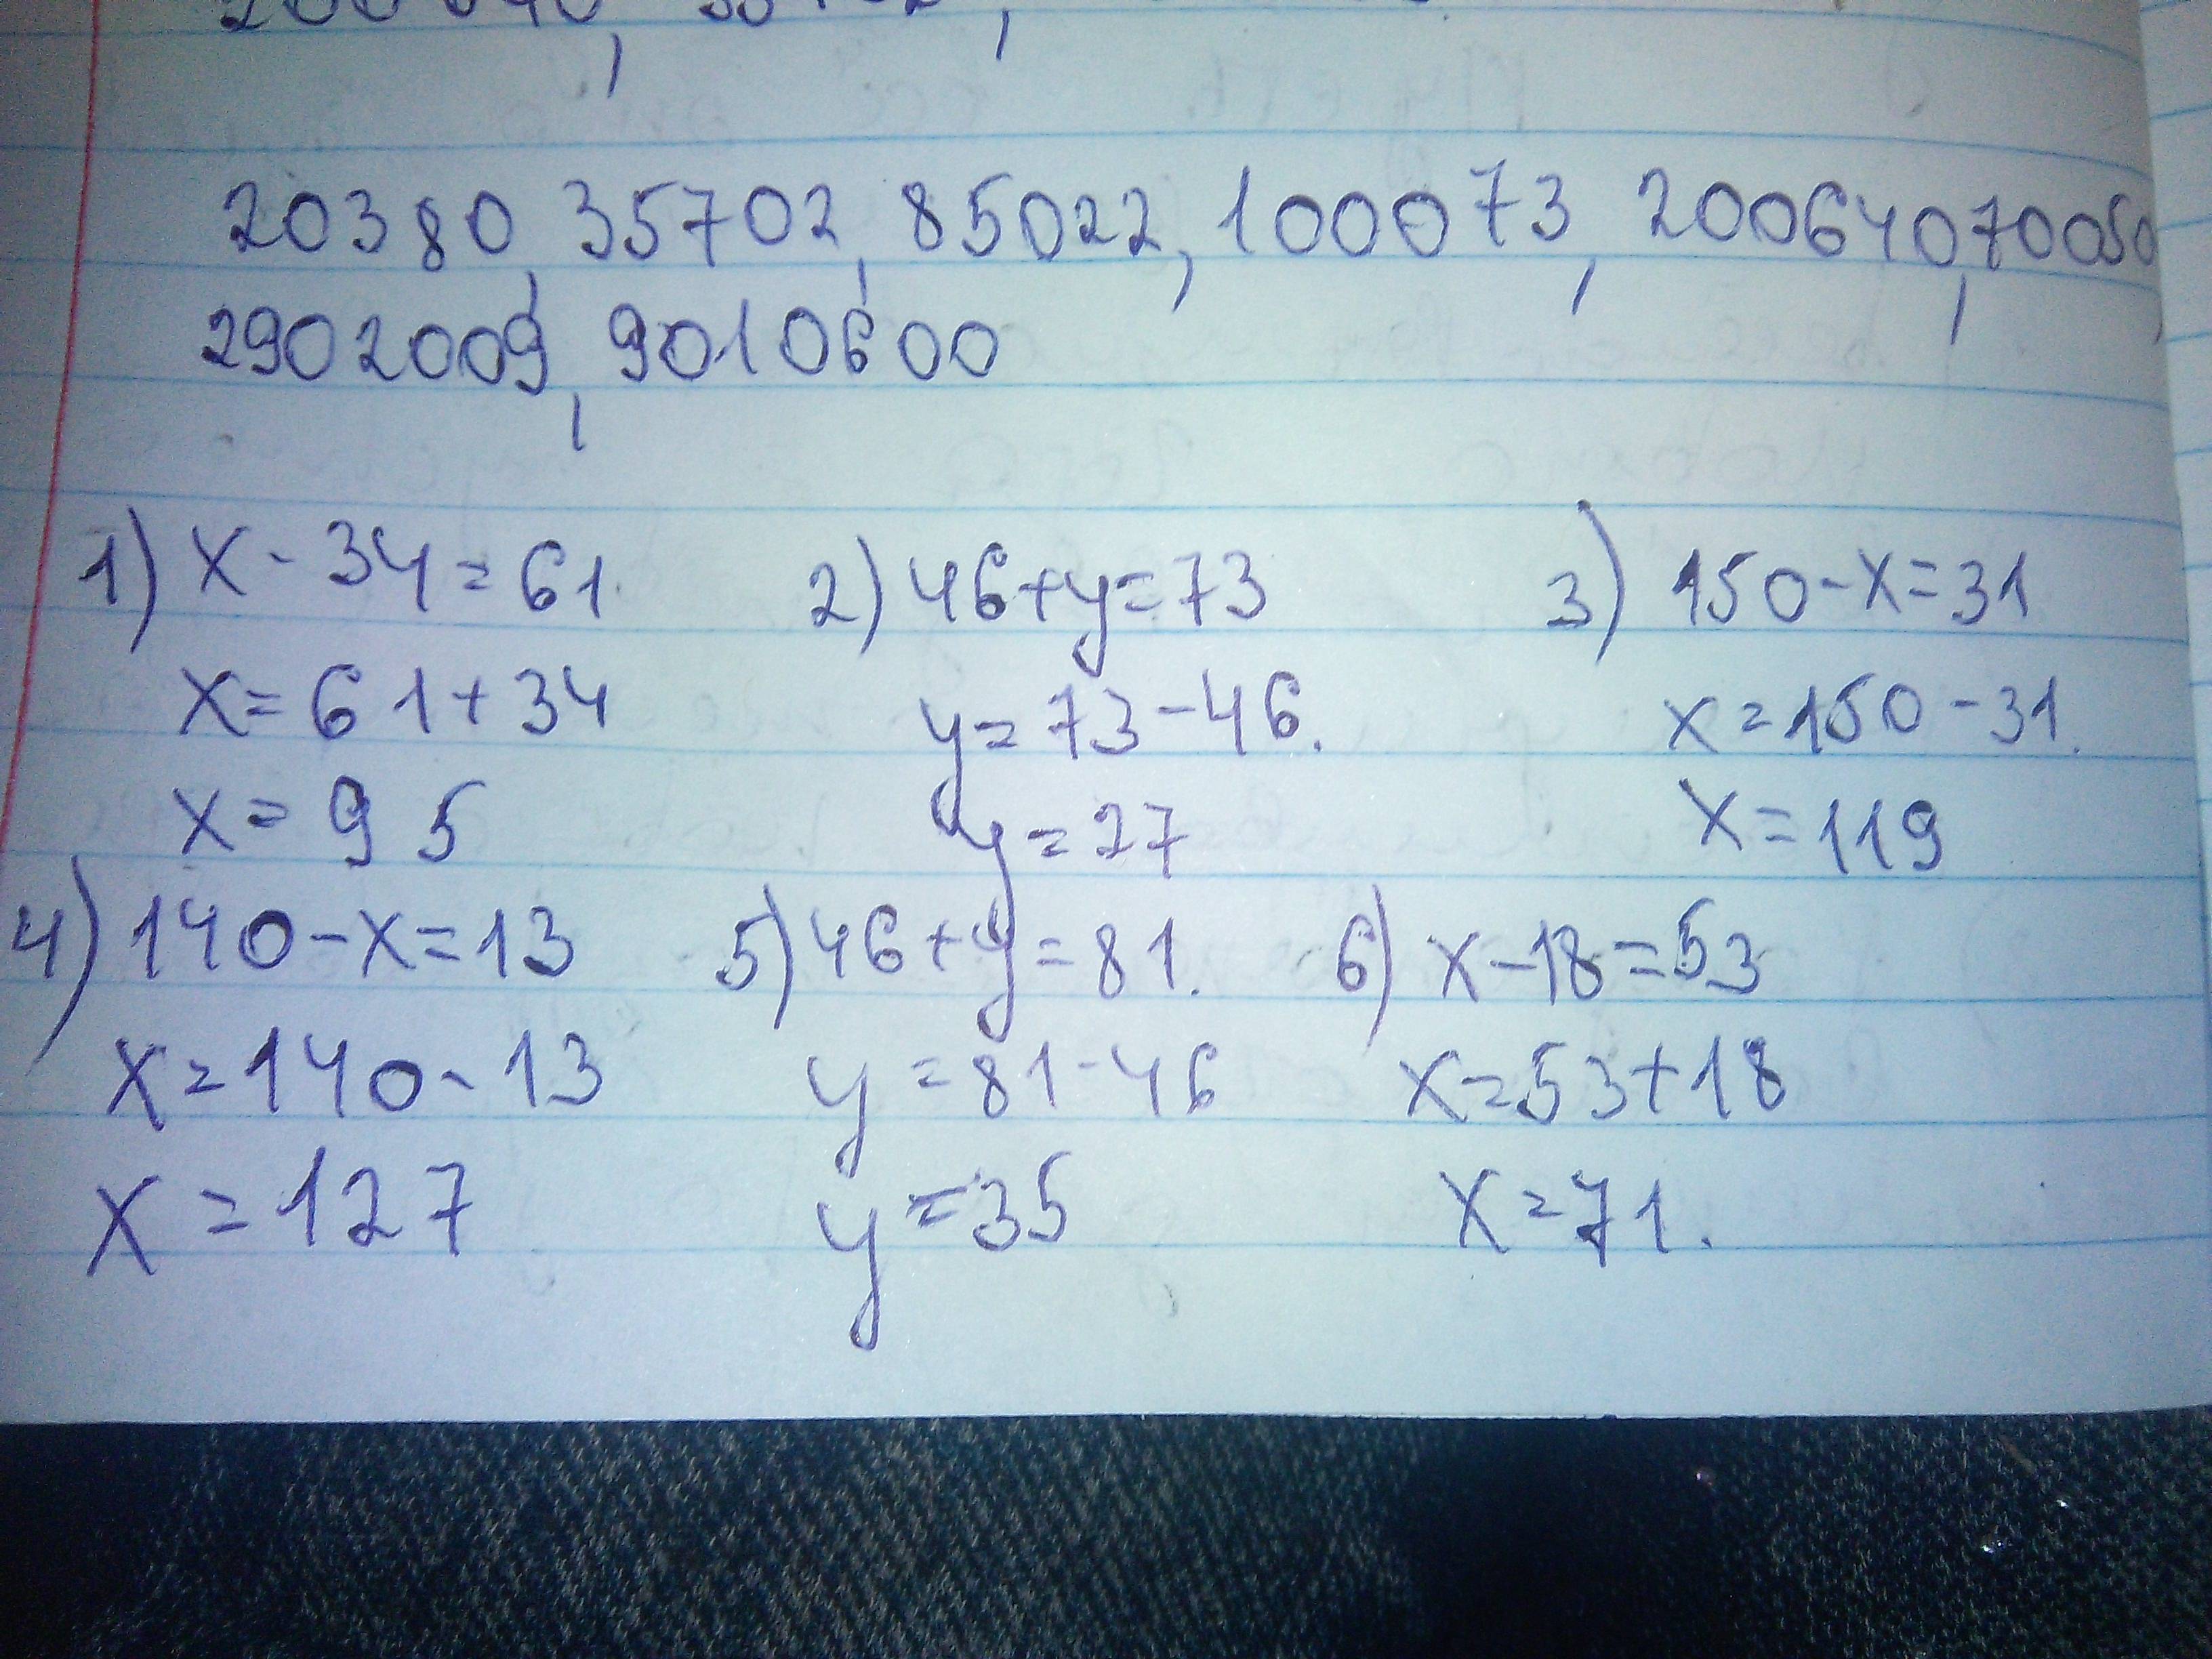 20380, 35702, 85022, 100073, 200640, 70050
2902009, 9010600
1) x - 34 = 61
x = 61 + 34
x = 95
2) 46 + y = 73
y = 73 - 46.
y = 27
3) 150 - x = 31
x = 150 - 31.
x = 119
4) 140 - x = 13
x = 140 - 13
x = 127
5) 46 + y = 81.
y = 81 - 46
y = 35
6) x - 18 = 53
x = 53 + 18
x = 71.